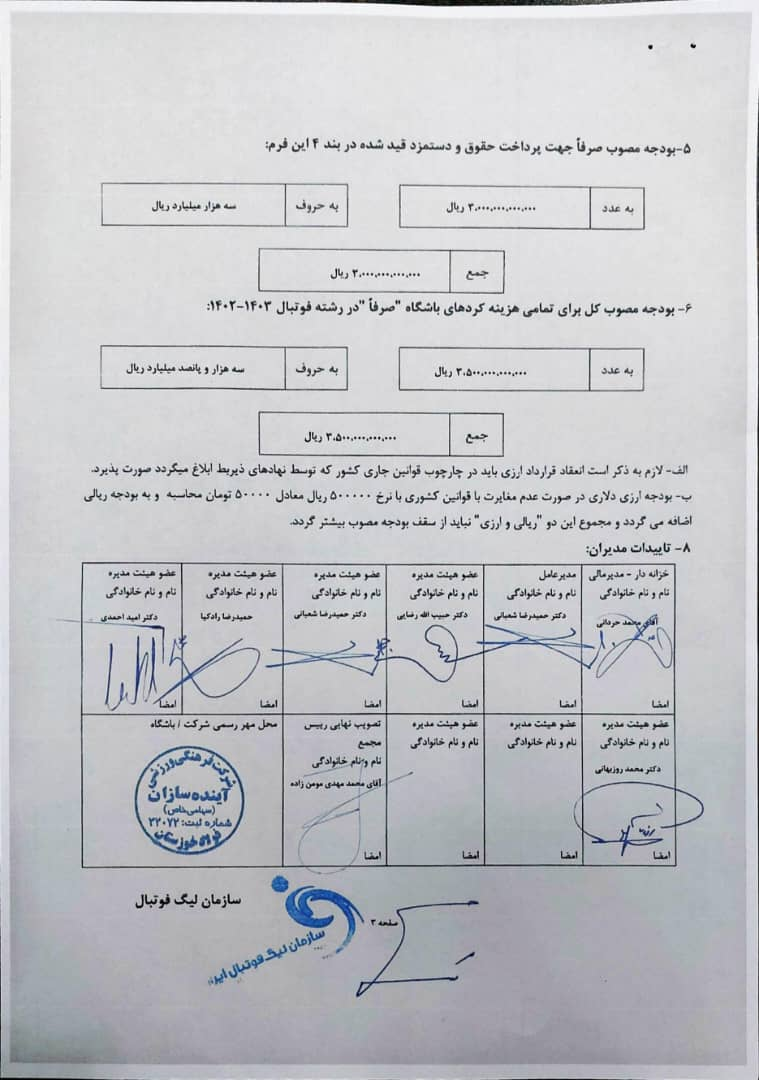 ۵-بودجه مصوب صرفاً جهت پرداخت حقوق و دستمزد قید شده در بند ۴ این فرم:
به عدد ۳،۰۰۰،۰۰۰،۰۰۰،۰۰۰ ریال به حروف سه هزار میلیارد ریال
جمع ۳،۰۰۰،۰۰۰،۰۰۰،۰۰۰ ریال
۶- بودجه مصوب کل برای تمامی هزینه کردهای باشگاه "صرفاً "در رشته فوتبال ۱۴۰۳-۱۴۰۲:
به عدد ۳،۵۰۰،۰۰۰،۰۰۰،۰۰۰ ریال به حروف سه هزار و پانصد میلیارد ریال
جمع ۳،۵۰۰،۰۰۰،۰۰۰،۰۰۰ ریال
الف- لازم به ذکر است انعقاد قرارداد ارزی باید در چارچوب قوانین جاری کشور که توسط نهادهای ذیربط ابلاغ میگردد صورت پذیرد.
ب- بودجه ارزی دلاری در صورت عدم مغایرت با قوانین کشوری با نرخ ۵۰۰۰۰۰ ریال معادل ۵۰۰۰۰ تومان محاسبه و به بودجه ریالی
اضافه می گردد و مجموع این دو "ریالی و ارزی" نباید از سقف بودجه مصوب بیشتر گردد.
۸- تاییدات مدیران:
خزانه دار - مدیرمالی
نام و نام خانوادگی
آقای محمد حردانی
امضا
مدیرعامل
نام و نام خانوادگی
دکتر حمیدرضا شعبانی
امضا
عضو هیئت مدیره
نام و نام خانوادگی
دکتر حبیب الله رضایی
امضا
عضو هیئت مدیره
نام و نام خانوادگی
دکتر حمیدرضا شعبانی
امضا
عضو هیئت مدیره
نام و نام خانوادگی
حمیدرضا رادکیا
امضا
عضو هیئت مدیره
نام و نام خانوادگی
دکتر امید احمدی
امضا
عضو هیئت مدیره
نام و نام خانوادگی
دکتر محمد روزبهانی
امضا
عضو هیئت مدیره
نام و نام خانوادگی
امضا
عضو هیئت مدیره
نام و نام خانوادگی
امضا
تصویب نهایی رییس
مجمع
نام و نام خانوادگی
آقای محمد مهدی مومن زاده
امضا
محل مهر رسمی شرکت / باشگاه
شرکت فرهنگی ورزشی
آینده سازان
(سهامی خاص)
شماره ثبت: ۳۲۰۷۲
فولاد خوزستان
سازمان لیگ فوتبال
صفحه ۳
سازمان لیگ فوتبال ایران